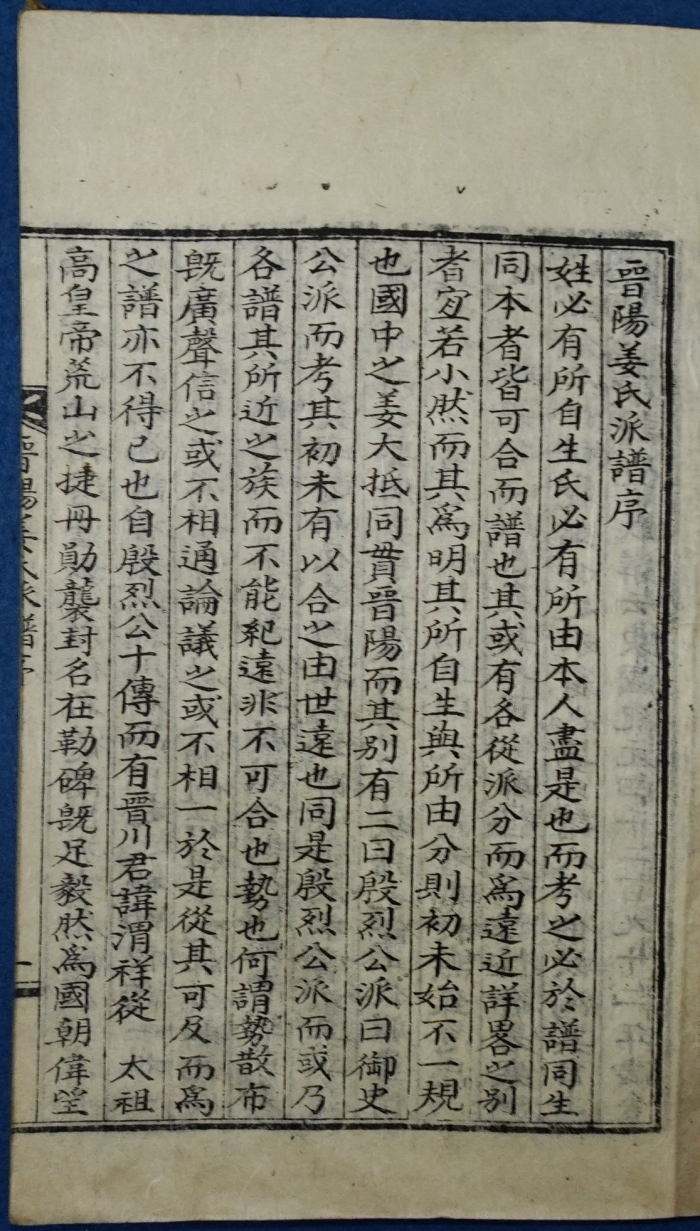 晋陽姜氏派譜序
姓必有所自生氏必有所由本人盡是也而考之必於譜同生
同本者皆可合而譜也其或有各從派分而爲遠近詳畧之別
者宜若小然而其爲明其所自生與所由分則初未始不一規
也國中之姜大抵同貫晋陽而其別有二曰殷烈公派曰御史
公派而考其初未有以合之由世遠也同是殷烈公派而或乃
各譜其所近之族而不能紀遠非不可合也勢也何謂勢散布
旣廣聲信之或不相通論議之或不相一於是從其可及而爲
之譜亦不得已也自殷烈公十傳而有晋川君諱渭祥從 太祖
高皇帝荒山之捷冊勛襲封名在勒碑旣足毅然爲國朝偉望
晋陽姜氏派譜序
一